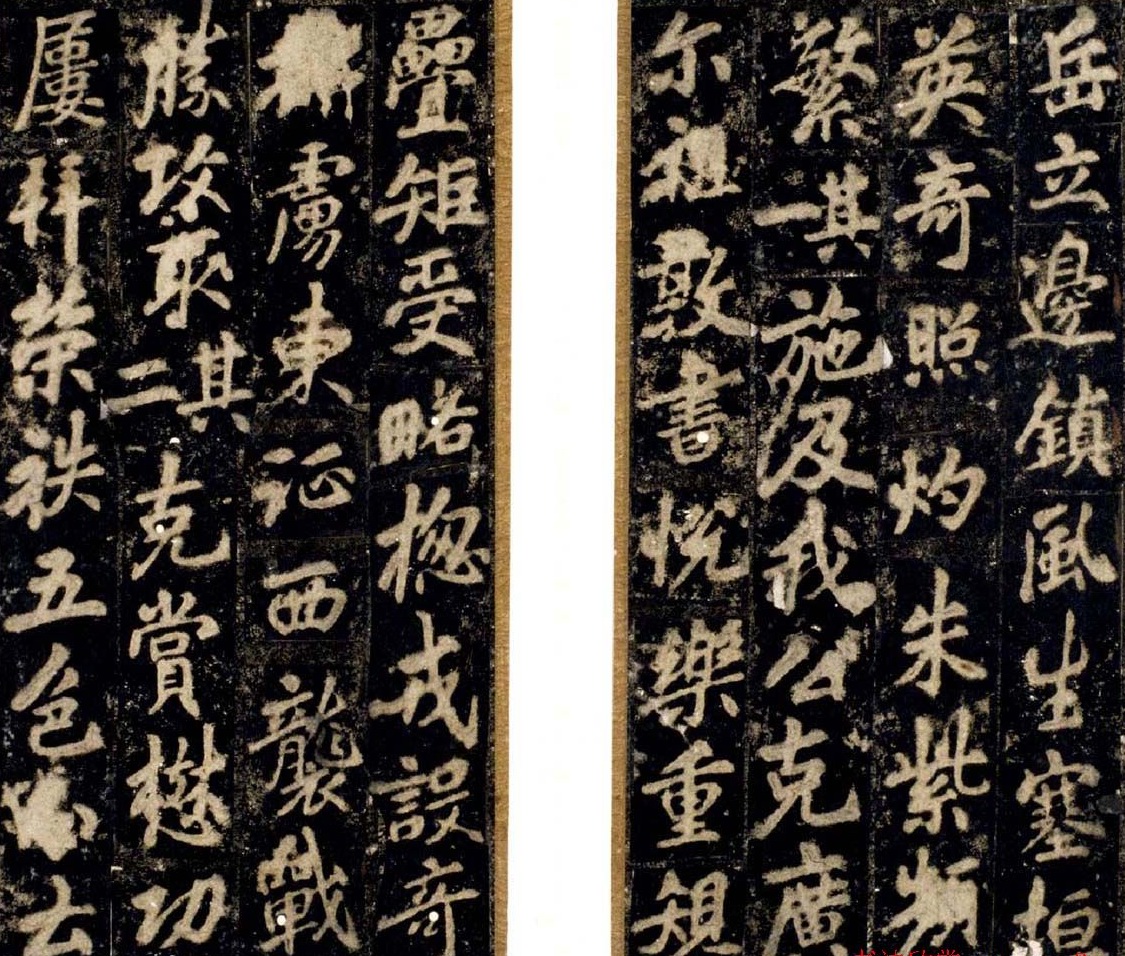 岳立邊鎮風生塞垣
英奇照灼朱紫頻
繁其一施及我公克廣
尔祖敦書悅樂重規
疊矩受略揔戎設奇
虜東征西襲戰
勝攻取其二克賞懋功
屢拜榮秩五色